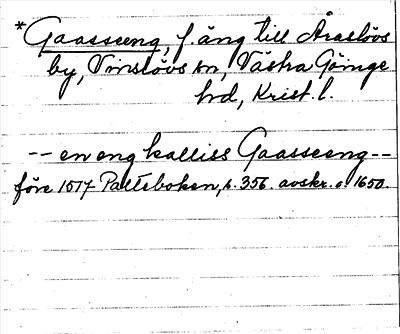 *Gaasseeng, f. äng till Araslövs
by, Vinslövs sn, Västra Göinge
hrd, Krist. l.
-- en eng kalliss Gaasseeng --
före 1517 Palteboken, s. 356. avskr. o. 1650.